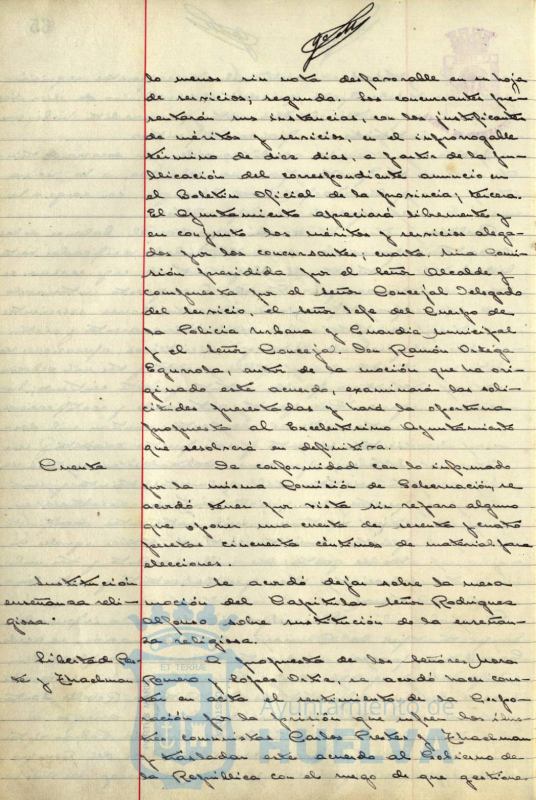 lo menos sin nota desfavorable en su hoja
de servicios; segunda. Los concursantes pre-
sentarán sus instancias, con los justificantes
de méritos y servicios, en el improrrogable
término de diez días, a partir de la pu-
blicación del correspondiente anuncio en
el Boletín Oficial de la provincia; tercera.
El Ayuntamiento apreciará libremente y
en conjunto los méritos y servicios alega-
dos por los concursantes; cuarta. Una Comi-
sión presidida por el Señor Alcalde y
compuesta por el señor Concejal Delegado
del servicio, el señor Jefe del Cuerpo de
la Policía Urbana y Guardia municipal
y el señor Concejal Don Ramón Ortega
autor de la moción que ha ori-
ginado este acuerdo, examinarán las soli-
citudes presentadas y hará la oportuna
propuesta al Excelentísimo Ayuntamiento
que resolverá en definitiva.
Cuenta De conformidad con lo informado
por la misma Comisión de Gobernación, se
acordó tener por vista sin reparo alguno
que oponer una cuenta de sesenta y cuatro
pesetas cincuenta céntimos de material para
elecciones.
Sustitución Se acordó dejar sobre la mesa
enseñanza reli- moción del Capitular Señor Rodríguez
giosa. Alfonso sobre sustitución de la enseñan-
za religiosa.
Libertad Pres- A propuesta de los Señores
te y Thaelman Romero y López Ortiz, se acordó hacer cons-
tar en acta el sentimiento de la Corpo-
ración por la prisión que sufren los
comunistas Carlos Prestes y Thaelman
y trasladar este acuerdo al Gobierno de
la República con el ruego de que gestione
ET TERRAE
Ayuntamiento de
HUELVA